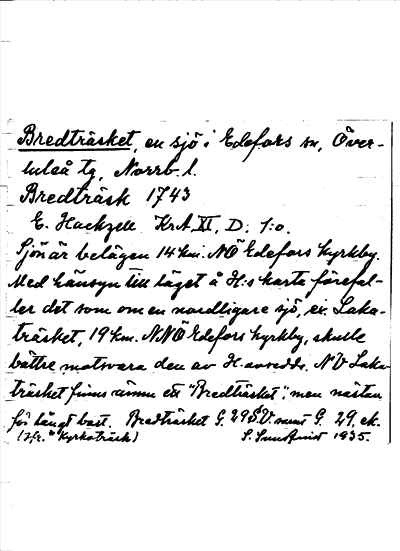 Bredträsket, en sjö i Edefors sn, Över-
luleå tg, Norrb. l.
Bredträsk 1743
E. Hackzell KrA XI, D. 1:o.
Sjön är belägen 14 km. NÖ Edefors kyrkby.
Med hänsyn till läget å H:s karta förefal-
ler det som om en nordligare sjö, Laka-
träsket, 19 km. NNÖ Edefors kyrkby, skulle
bättre motsvara den av H. avsedda. NV Laka-
träsket finns ännu ett "Bredträsket", men nästan
för långt bort. Bredträsket G. 29 SV samt G. 29, ek.
(Jfr. Kyrkoträsk) 1935.